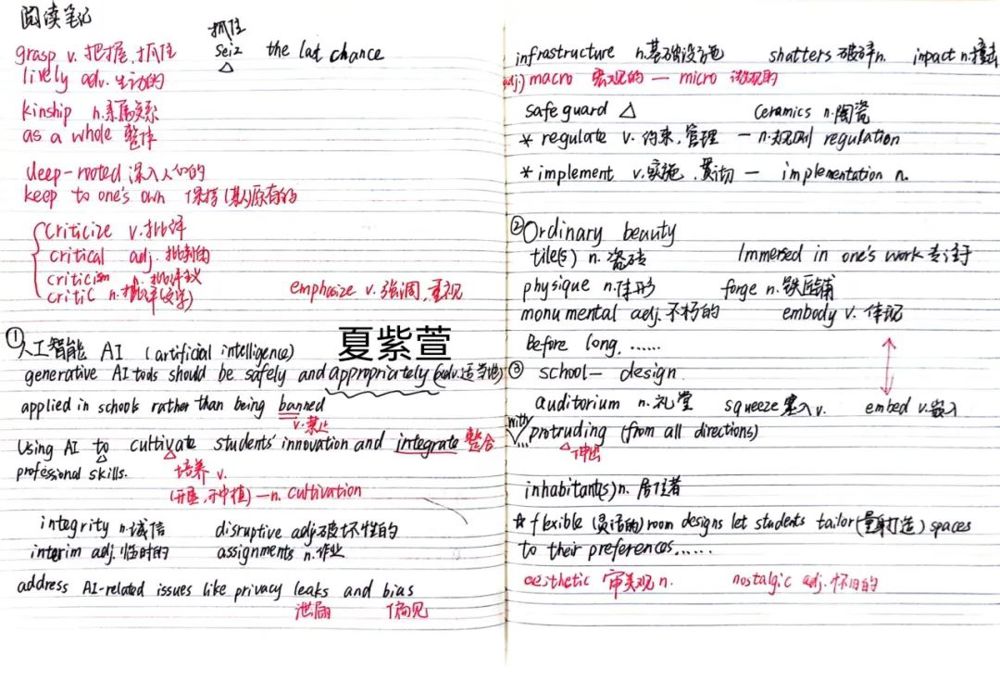 阅读笔记
抓住
grasp v. 把握、抓住 seiz the last chance
lively adv. 生动的
kinship n.亲属关系
as a whole 整体
deep-rooted 深入人心的
keep to one's own 保持(某人)原有的
criticize v.批评
critical adj. 批判的
criticism n.批评
critic n.批评(文学)
emphasize v.强调、重视
①人工智能 AI (artificial intelligence)
夏紫萱
generative AI tools should be safely and appropriately (adv.适当地)
applied in schools rather than being banned
v.禁止
Using AI to cultivate students' innovation and integrate 整合
professional skills. 培养 v.
(开垦,种植)—n. cultivation
integrity n.诚信 disruptive adj.破坏性的
interim adj.临时的 assignments n.作业
address AI-related issues like privacy leaks and bias
泄漏 偏见
infrastructure n.基础设施 shatters 破碎n. inpact n.撞击
(adj) macro 宏观的 — micro 微观的
safeguard △ Ceramics n.陶瓷
* regulate v. 约束,管理 — n.规则 regulation
* implement v.实施、贯彻 — implementation n.
②Ordinary beauty
tile(s) n.瓷砖 Immersed in one's work 专注于
physique n.体形 forge n.铁匠铺
monumental adj.不朽的 embody v. 体现
Before long, ......
③ school— design
auditorium n.礼堂 squeeze 塞入v. embed v.嵌入
with
protruding (from all directions)
伸出
inhabitant(s) n. 居住者
* flexible (灵活的) room designs let students tailor(量身打造) spaces
to their preferences......
aesthetic 审美观 n. nostalgic adj.怀旧的